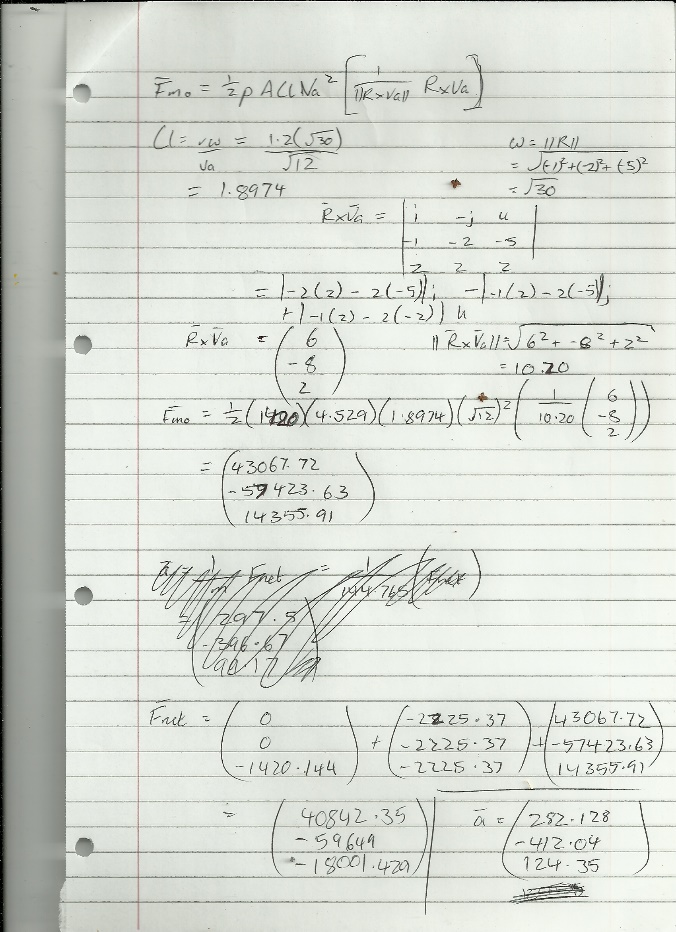 F̄mo = ½ρ ACl Va² [ 1/||RxVa|| RxVa ]
Cl = rw/Va = 1.2(√30)/√12
ω = ||R||
= √(-1)²+(-2)²+(-5)²
= 1.8974
= √30
R̄xV̄a = | i -j k |
-1 -2 -5
2 2 2
= |-2(2) - 2(-5)|i, -|-1(2) - 2(-5)|j
+ |-1(2) - 2(-2)| k
R̄xV̄a = ( 6
-8
2 )
||R̄xV̄a|| = √6² + -8² + 2²
= 10.20
F̄mo = ½(1420)(4.529)(1.8974)(√12)² ( 1/10.20 ( 6
-8
2 ) )
= ( 43067.72
-57423.63
14355.91 )
Fnet = 1/144.765 (Fnet)
= ( 297.5
-396.67
)
F̄net = ( 0
0
-1420.144 ) + ( -2225.37
-2225.37
-2225.37 ) + ( 43067.72
-57423.63
14355.91 )
= ( 40842.35
-59649
-18001.429 )
ā = ( 282.128
-412.04
124.35 )